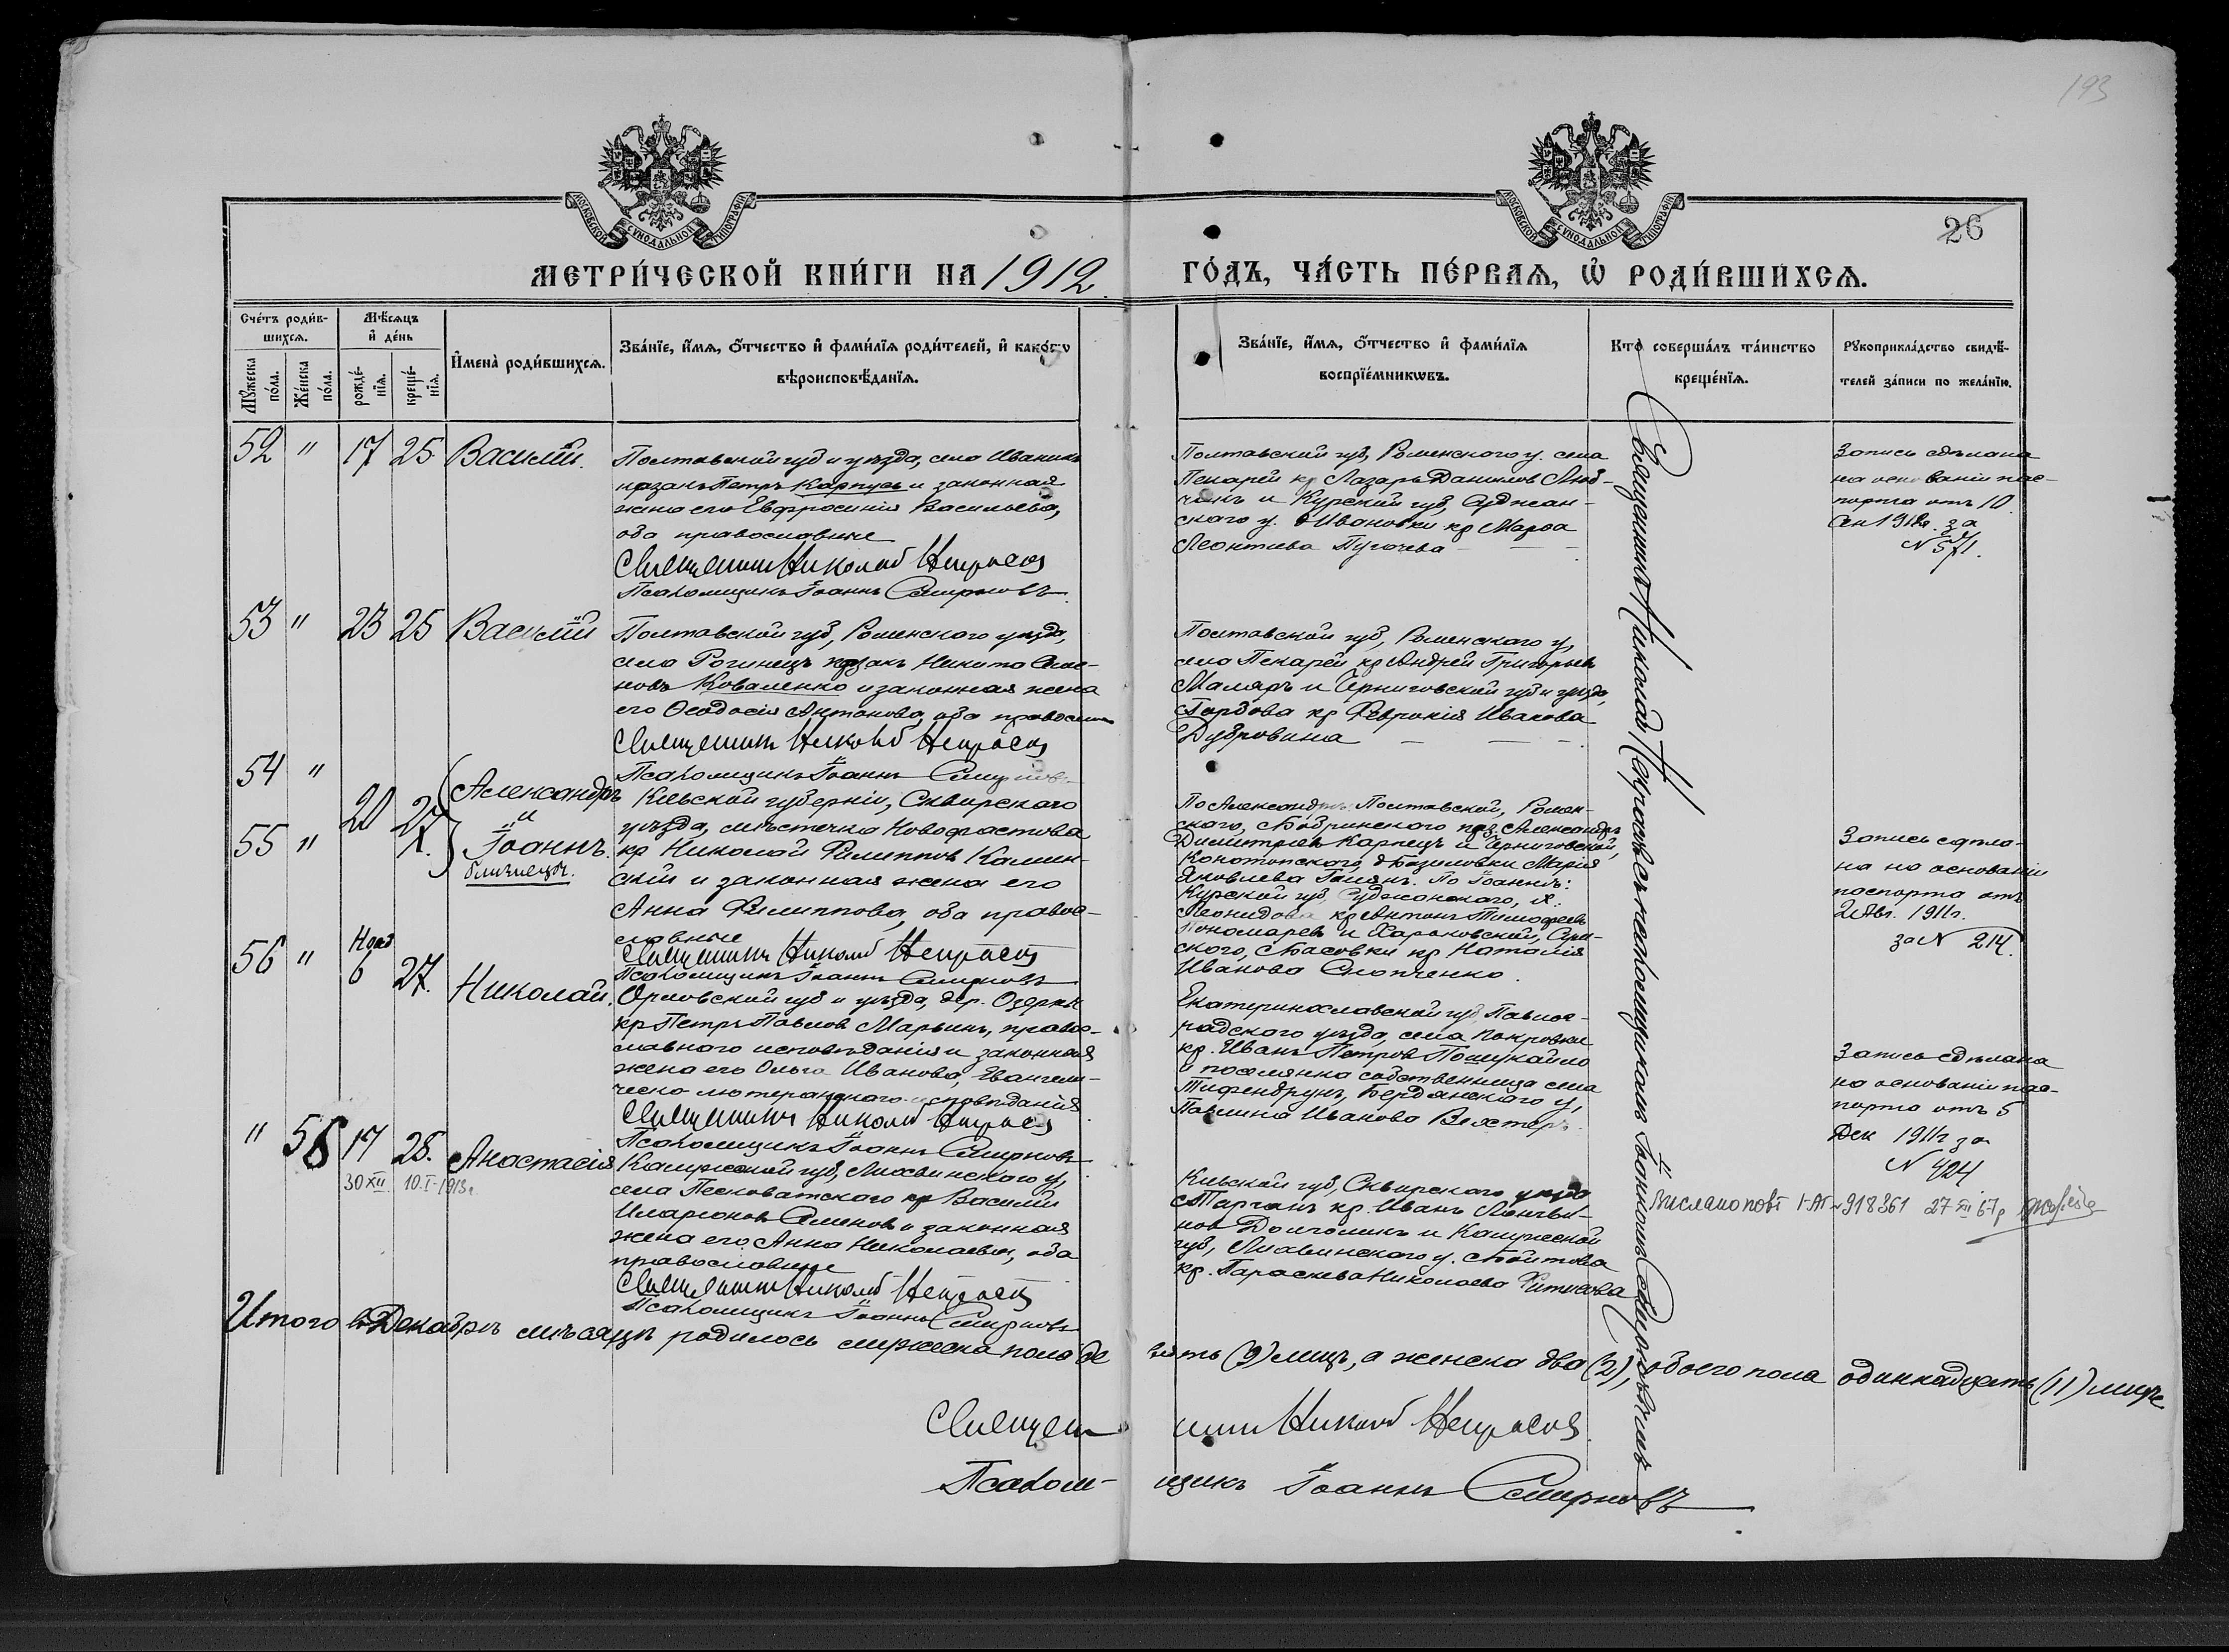 193
МОСКОВСКОЙ СѴНОДАЛЬНОЙ ТИПОГРАФІИ
МОСКОВСКОЙ СѴНОДАЛЬНОЙ ТИПОГРАФІИ
26
МЕТРИ́ЧЕСКОЙ КНИ́ГИ НА 1912
ГО́ДЪ, ЧА́СТЬ ПЕ́РВАѦ, Ѡ РОДИ́ВШИХСѦ.
Сче́тъ роди́в-
шихсѧ.
Мѣ́сѧцъ
и҆ де́нь
Мꙋ́жеска
по́ла.
Же́нска
по́ла.
рожде́-
нїѧ.
креще́-
нїѧ.
И҆мена̀ роди́вшихсѧ.
Зва́нїе, и҆́мѧ, ѻ҆́тчество и҆ фами́лїѧ роди́телей, и҆ како́гѡ
вѣроисповѣ́данїѧ.
Зва́нїе, и҆́мѧ, ѻ҆́тчество и҆ фами́лїѧ
воспрїе́мникѡвъ.
Кто̀ соверша́лъ та́инство
креще́нїѧ.
Рꙋкоприкла́дство свидѣ́-
телей за́писи по жела́нїю.
52 " 17 25 Василій.
Полтавской губ и уѣзда, села Ивашки
казакъ Петръ Карпусь и законная
жена его Евфросинія Васильева,
оба православные
Священникъ Николай Некрасов
Псаломщикъ Іоаннъ Смирновъ
Полтавской губ, Роменскаго у. села
Пекарей кр Лазарь Данилов Люб-
чакъ и Курской губ, Суджан-
скаго у. Ивановки кр Марѳа
Леонтиева Пугачева
Запись сдѣлана
на основаніи пас-
порта отъ 10
Сен 1912г. за
N 571.
53 " 23 25 Василій
Полтавской губ, Роменскаго уѣзда,
села Рогинецъ казакъ Никита Симо-
новъ Коваленко и законная жена
его Ѳеодосія Антонова, оба православн
Священникъ Николай Некрасов
Псаломщикъ Іоаннъ Смирнов
Полтавской губ, Роменскаго у,
села Пекарей кр Андрей Григорьев
Маляръ и Черниговской губ и уѣзда,
Горбова кр Февронія Ивакова
Дубровина
54 "
20 27
55 " X.
Александръ
и
Іоаннъ.
близнецы.
Кіевской губерніи, Сквирскаго
уѣзда, мѣстечка Новофастова
кр Николай Филиппов Камин-
скій и законная жена его
Анна Филиппова, оба правос-
лавные
Священникъ Николай Некрасов
Псаломщикъ Іоаннъ Смирновъ
По Александру: Полтавской, Ромен-
скаго, с Бобринскаго каз. Александръ
Димитріев Карпецъ и Черниговской,
Конотопскаго, д Базиловки Марія
Яковлева Гаман. По Іоанну:
Курской губ, Суджанскаго, х.
Леонидова кр Антонъ Тимофеевъ
Пономарев и Харьковской, Сум-
скаго, с Басовки кр Наталія
Иванова Слопченко
Запись сдѣла-
на на основаніи
паспорта отъ
2 Авг. 1911г.
за N 214.
56 " Нояб 6 27. Николай.
Орловской губ и уѣзда, дер. Озерки
кр Петръ Павлов Марьинъ, правос-
лавнаго исповѣданія и законная
жена его Ольга Иванова, Евангели-
ческо лютеранскаго исповѣданія
Священникъ Николай Некрасов
Псаломщикъ Іоаннъ Смирновъ
Екатеринославской губ Павлог-
радскаго уѣзда, села Покровки
кр. Иванъ Петров Пошукайло
и поселянка собственница села
Тифенбрунъ, Бердянскаго у,
Паулина Иванова Вехтеръ
Запись сдѣлана
на основаніи пас-
порта отъ 5
Дек 1911г за
N 424
" 58 17 28. Анастасія
30 XII 10.I-1913г
Калужской губ, Лихвинскаго у,
села Песковатскаго кр Василій
Иларіонов Семенов и законная
жена его Анна Николаева, оба
православные
Священникъ Николай Некрасов
Псаломщикъ Іоаннъ Смирновъ
Кіевской губ, Сквирскаго уѣзда
с Тарганъ кр. Иванъ Логви-
нов Долголикъ и Калужской
губ, Лихвинскаго у. с Болтова
кр. Параскева Николаева Фитисова
Вислано повт I-АГ 918361 27 XII 67р
Священникъ Николай Некрасовъ съ псаломщикомъ Іоанномъ Смирновымъ
Итого въ Декабрѣ мѣсяцѣ родилось мужеска пола де
вять (9) лицъ, а женска два (2), обоего пола одиннадцать (11) лицъ
Священ
никъ Николай Некрасов
Псалом-
щикъ Іоаннъ Смирновъ